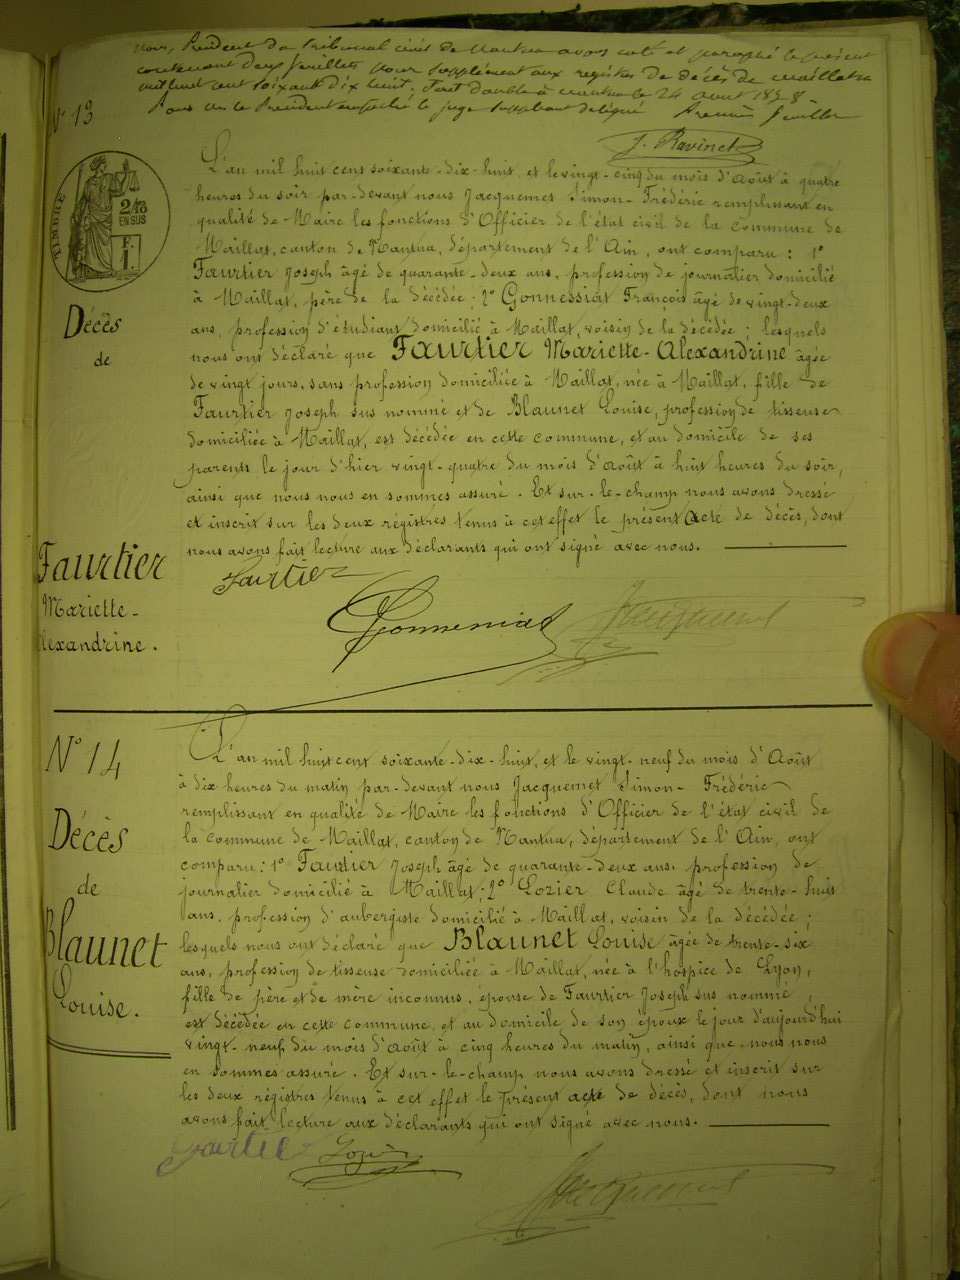 Nous, Président du Tribunal civil de Nantua avons coté et paraphé le présent
contenant deux feuillets pour supplément aux registres de décès de Maillat
mil huit cent soixante dix huit. Fait double à Nantua le 24 août 1878.
Pour le Président empêché le juge suppléant délégué Premier feuillet
J. Ravinet
N° 13
TIMBRE
2/10
EN SUS
F.
1
Décès
de
Faurtier
Mariette-
Alexandrine.
L'an mil huit cent soixante-dix-huit, et le vingt-cinq du mois d'Août à quatre
heures du soir par-devant nous Jacquemet Simon-Frédéric remplissant en
qualité de Maire les fonctions d'Officier de l'état civil de la commune de
Maillat, canton de Nantua, département de l'Ain, ont comparu : 1°
Faurtier Joseph âgé de quarante-deux ans, profession de journalier domicilié
à Maillat, père de la décédée ; 2° Gonnessiat François âgé de vingt-deux
ans, profession d'étudiant domicilié à Maillat, voisin de la décédée ; lesquels
nous ont déclaré que Faurtier Mariette-Alexandrine âgée
de vingt jours, sans profession domiciliée à Maillat, née à Maillat, fille de
Faurtier Joseph sus nommé et de Blaunet Louise, profession de tisseuse
domiciliée à Maillat, est décédée en cette commune, et au domicile de ses
parents le jour d'hier vingt-quatre du mois d'Août à huit heures du soir,
ainsi que nous nous en sommes assuré. Et sur-le-champ nous avons dressé
et inscrit sur les deux régistres tenus à cet effet le présent acte de décès, dont
nous avons fait lecture aux déclarants qui ont signé avec nous.
Faurtier
Gonnessiat
Jacquemet
N° 14
Décès
de
Blaunet
Louise.
L'an mil huit cent soixante-dix-huit, et le vingt-neuf du mois d'Août
à dix heures du matin par-devant nous Jacquemet Simon-Frédéric
remplissant en qualité de Maire les fonctions d'Officier de l'état civil de
la commune de Maillat, canton de Nantua, département de l'Ain, ont
comparu : 1° Faurtier Joseph âgé de quarante-deux ans, profession de
journalier domicilié à Maillat ; 2° Lozier Claude âgé de trente-huit
ans, profession d'aubergiste domicilié à Maillat, voisin de la décédée ;
lesquels nous ont déclaré que Blaunet Louise âgée de trente-six
ans, profession de tisseuse domiciliée à Maillat, née à l'hospice de Lyon,
fille de père et de mère inconnus, épouse de Faurtier Joseph sus nommé,
est décédée en cette commune, et au domicile de son époux le jour d'aujourd'hui
vingt-neuf du mois d'Août à cinq heures du matin, ainsi que nous nous
en sommes assuré. Et sur-le-champ nous avons dressé et inscrit sur
les deux régistres tenus à cet effet le présent acte de décès, dont nous
avons fait lecture aux déclarants qui ont signé avec nous.
Faurtier Lozier
Jacquemet